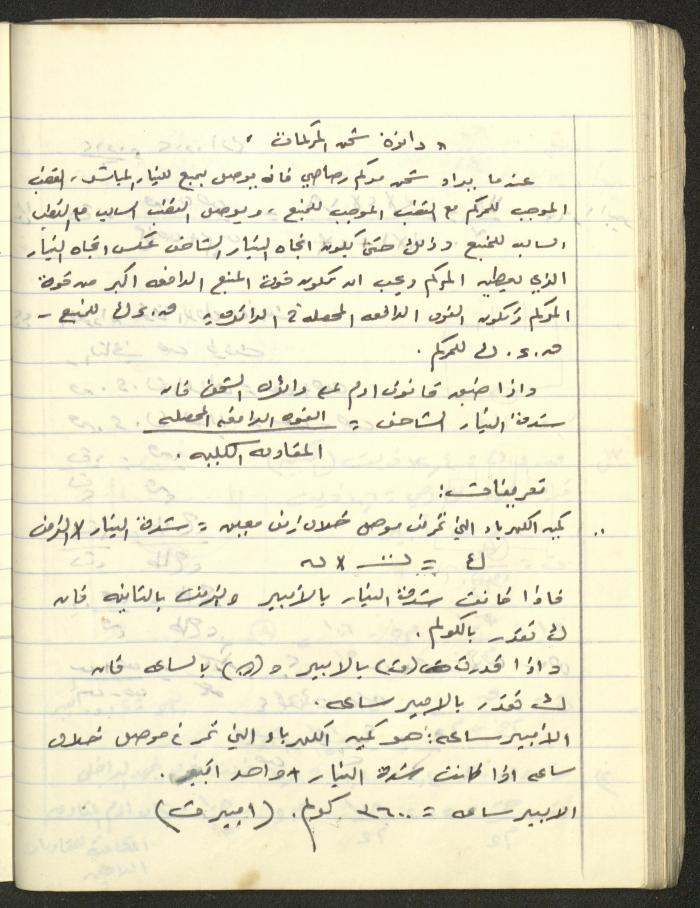 « دائرة شحن المركمات »
عندما يراد شحن مركم رصاصي فانه يوصل بمنبع للتيار المباشر، القطب
الموجب للمركم مع القطب الموجب للمنبع، ويوصل القطب السالب مع القطب
السالب للمنبع وذلك حتى يكون اتجاه التيار الشاحن عكس اتجاه التيار
الذي يعطيه المركم ويجب ان تكون قوة المنبع الدافعه اكبر من قوة
المركم وتكون القوى الدافعه المحصله في الدائره = ق.ء.ك للمنبع -
ق.ء.ك للمركم.
واذا طبق قانون اوم على دائرة الشحن فان
شدة التيار الشاحن = القوه الدافعه المحصله
المقاومه الكليه.
تعريفات:
كمية الكهرباء التي تمر في موصل خلال زمن معين = شدة التيار × الزمن
ك = ت × ن
فاذا كانت شدة التيار بالأمبير والزمن بالثانيه فان
ك تقدر بالكولم.
واذا قدرت (ت) بالامبير و (ن) بالساعه فان
ك تقدر بالامبير ساعه.
الأمبير ساعه: هو كمية الكهرباء التي تمر في موصل خلال
ساعه اذا كانت شدة التيار واحد امبير.
الامبير ساعه = ٣٦٠٠ كولم. (امبير ث)